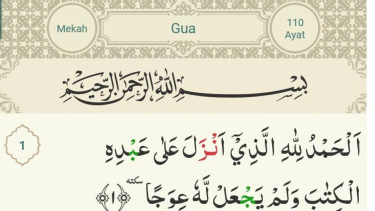 Mekah
Gua
110
Ayat
بِسْمِ اللّٰهِ الرَّحْمٰنِ الرَّحِيْمِ
1
اَلْحَمْدُ لِلّٰهِ الَّذِيْٓ اَنْزَلَ عَلٰى عَبْدِهِ
الْكِتٰبَ وَلَمْ يَجْعَلْ لَّهٗ عِوَجًا ۜ ﴿١﴾